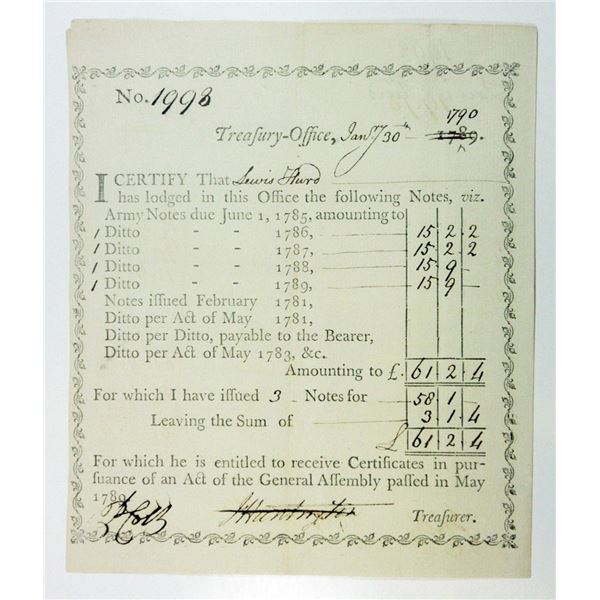 No. 1993
1790
Treasury-Office, Jany 30th 1789.
I CERTIFY That Lewis Hurd
has lodged in this Office the following Notes, viz.
Army Notes due June 1, 1785, amounting to
1 Ditto - - 1786, 15 2 2
1 Ditto - - 1787, 15 2 2
1 Ditto - - 1788, 15 9 -
1 Ditto - - 1789, 15 9 -
Notes issued February 1781,
Ditto per Act of May 1781,
Ditto per Ditto, payable to the Bearer,
Ditto per Act of May 1783, &c.
Amounting to £. 61 2 4
For which I have issued 3 Notes for 58 1 -
Leaving the Sum of 3 1 4
£ 61 2 4
For which he is entitled to receive Certificates in pur-
suance of an Act of the General Assembly passed in May
1789.
J Huntington Treasurer.